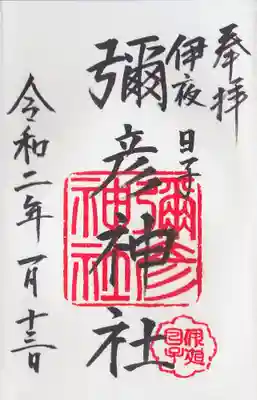 奉拝
伊夜日子
彌彦神社
令和二年一月十三日
彌彦
神社